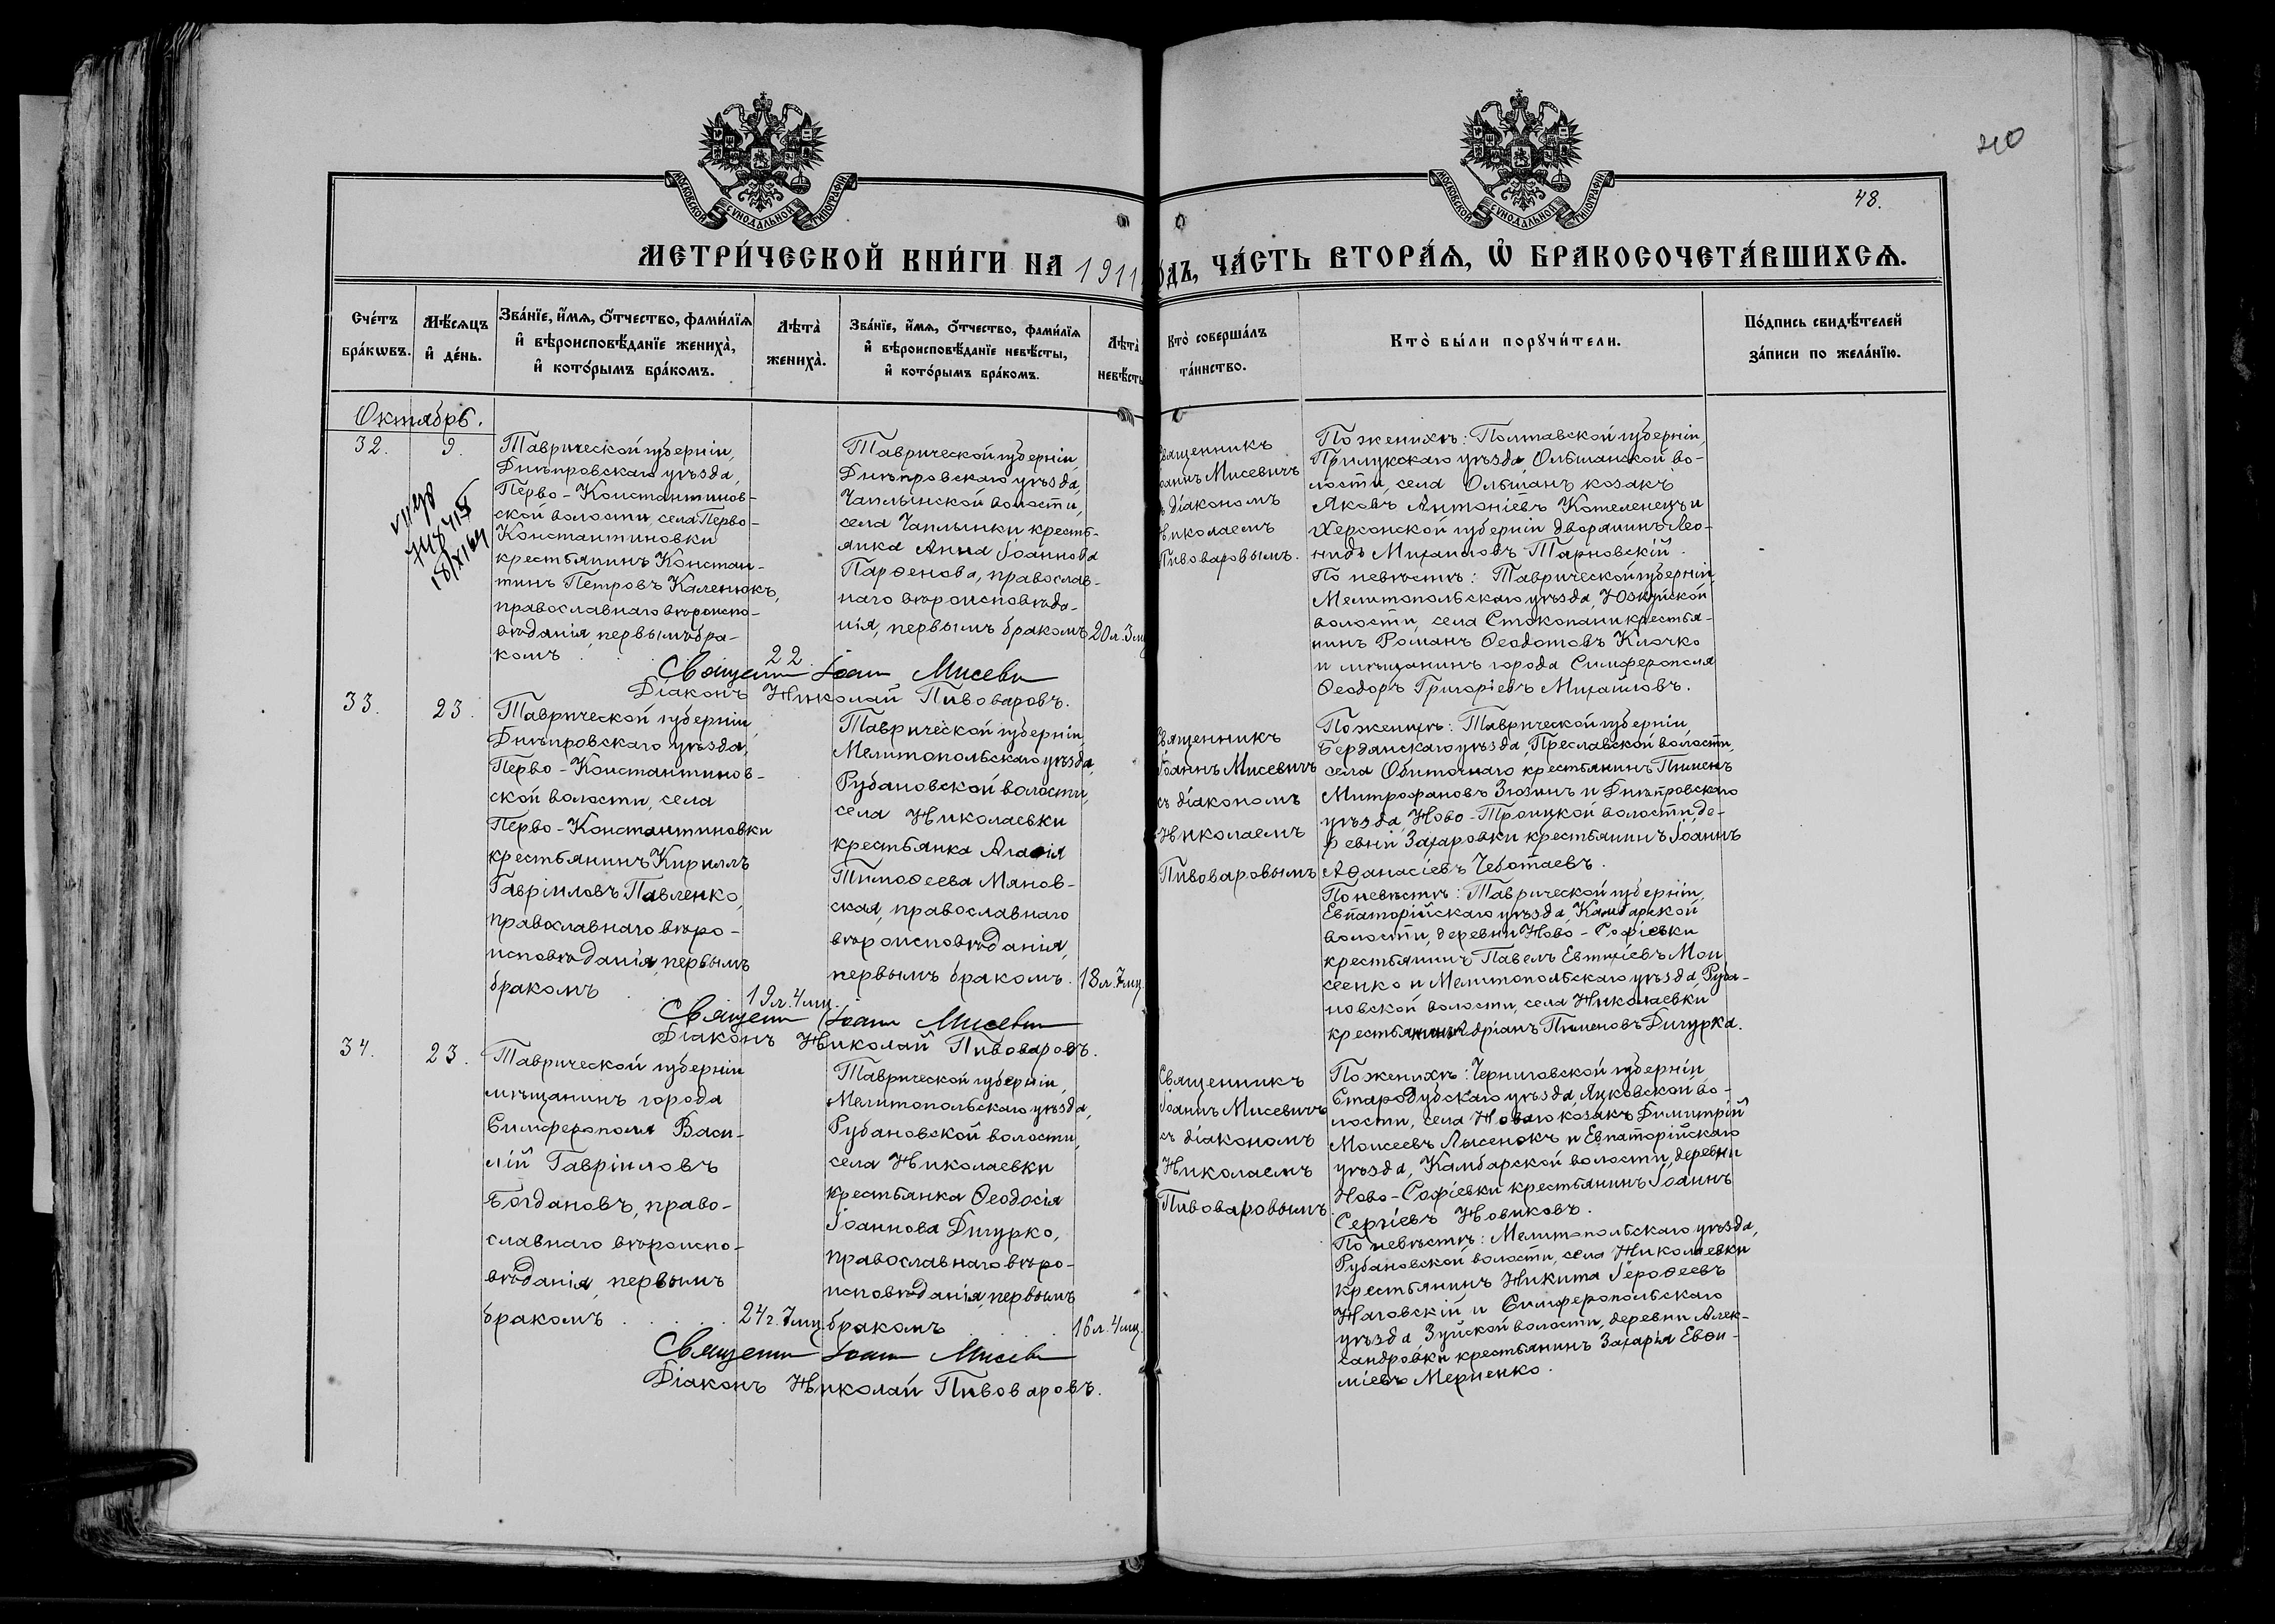 210
48.
МОСКОВСКОЙ СѴНОДАЛЬНОЙ ТИПОГРАФІИ
МОСКОВСКОЙ СѴНОДАЛЬНОЙ ТИПОГРАФІИ
МЕТРИ́ЧЕСКОЙ КНИ́ГИ НА 1911
ОДЪ, ЧА́СТЬ ВТОРА́Ѧ, Ѡ҆ БРАКОСОЧЕТА́ВШИХСѦ.
Сче́тъ
бра́кѡвъ.
Мѣ́сѧцъ
и҆ де́нь.
Зва́нїе, и҆́мѧ, ѻ҆́тчество, фами́лїѧ
и҆ вѣроисповѣ́данїе жениха̀,
и҆ кото́рымъ бра́комъ.
Лѣта̀
жениха̀.
Зва́нїе, и҆́мѧ, ѻ҆́тчество, фами́лїѧ
и҆ вѣроисповѣ́данїе невѣ́сты,
и҆ кото́рымъ бра́комъ.
Лѣта̀
невѣ́сты
Кто̀ соверша́лъ
та́инство.
Кто̀ бы́ли порꙋчи́тели.
По́дпись свидѣ́телей
за́писи по жела́нїю.
Октябрь.
32.
9.
18/XI64
Таврической губерніи,
Днѣпровскаго уѣзда,
Перво-Константинов-
ской волости, села Перво-
Константиновки
крестьянинъ Констан-
тинъ Петровъ Каленюкъ,
православнаго вѣроиспо-
вѣданія, первымъ бра-
комъ
22.
Таврической губерніи
Днѣпровскаго уѣзда,
Чаплынской волости,
села Чаплынки кресть-
янка Анна Іоаннова
Парѳенова, православ-
наго вѣроисповѣда-
нія, первымъ бракомъ
20 л. 3 мц
Священникъ
Іоаннъ Мисевичъ
съ діакономъ
Николаемъ
Пивоваровымъ.
По женихѣ: Полтавской губерніи,
Прилукскаго уѣзда, Ольшанской во-
лости, села Ольшанъ козакъ
Яковъ Антоніевъ Котеленецъ и
Херсонской губерніи дворянинъ Лео-
нидъ Михаиловъ Тарновскій.
По невѣстѣ: Таврической губерніи,
Мелитопольскаго уѣзда, Юзкуйской
волости, села Стокопани крестья-
нинъ Романъ Ѳеодотовъ Клочко
и мѣщанинъ города Симферополя
Ѳеодоръ Григоріевъ Михайловъ.
Священ Іоанн Мисеви
Діаконъ Николай Пивоваровъ.
33.
23.
Таврической губерніи,
Днѣпровскаго уѣзда,
Перво-Константинов-
ской волости, села
Перво-Константиновки
крестьянинъ Кириллъ
Гавріиловъ Павленко,
православнаго вѣро-
исповѣданія, первымъ
бракомъ
19 л. 4 мц.
Таврической губерніи,
Мелитопольскаго уѣзда,
Рубановской волости,
села Николаевки
крестьянка Агаѳія
Тимоѳеева Манов-
ская, православнаго
вѣроисповѣданія,
первымъ бракомъ.
18 л. 7 мц.
Священникъ
Іоаннъ Мисевичъ
съ діакономъ
Николаемъ
Пивоваровымъ
По женихѣ: Таврической губерніи,
Бердянскаго уѣзда, Преславской волости,
села Обиточнаго крестьянинъ Пименъ
Митрофановъ Зюзинъ и Днѣпровскаго
уѣзда, Ново-Троицкой волости, де-
ревни Захаровки крестьянинъ Іоаннъ
Аѳанасіевъ Чеботаевъ.
По невѣстѣ: Таврической губерніи,
Евпаторійскаго уѣзда, Камбарской
волости, деревни Ново-Софіевки
крестьянинъ Павелъ Евтихіевъ Мои
сеенко и Мелитопольскаго уѣзда, Руба-
новской волости, села Николаевки
крестьянинъ Адріанъ Пименовъ Дигурка.
Священ Іоанн Мисеви
Діаконъ Николай Пивоваровъ.
34.
23.
Таврической губерніи
мѣщанинъ города
Симферополя Васи-
лій Гавріиловъ
Богдановъ, право-
славнаго вѣроиспо-
вѣданія, первымъ
бракомъ
24 г. 7 мц.
Таврической губерніи,
Мелитопольскаго уѣзда,
Рубановской волости,
села Николаевки
крестьянка Ѳеодосія
Іоаннова Дигурко,
православнаго вѣро-
исповѣданія, первымъ
бракомъ
16 л. 4 мц.
Священникъ
Іоаннъ Мисевичъ
съ діакономъ
Николаемъ
Пивоваровымъ.
По женихѣ: Черниговской губерніи
Стародубскаго уѣзда, Яцковской во-
лости, села Новаго козакъ Димитрій
Моисеевъ Лысенокъ и Евпаторійскаго
уѣзда, Камбарской волости, деревни
Ново-Софіевки крестьянинъ Іоаннъ
Сергіевъ Новиковъ.
По невѣстѣ: Мелитопольскаго уѣзда,
Рубановской волости, села Николаевки
крестьянинъ Никита Іероѳеевъ
Наговскій и Симферопольскаго
уѣзда, Зуйской волости, деревни Алек-
сандровки крестьянинъ Захарія Евѳи-
міевъ Мерненко.
Священ Іоанн Мисеви
Діаконъ Николай Пивоваровъ.